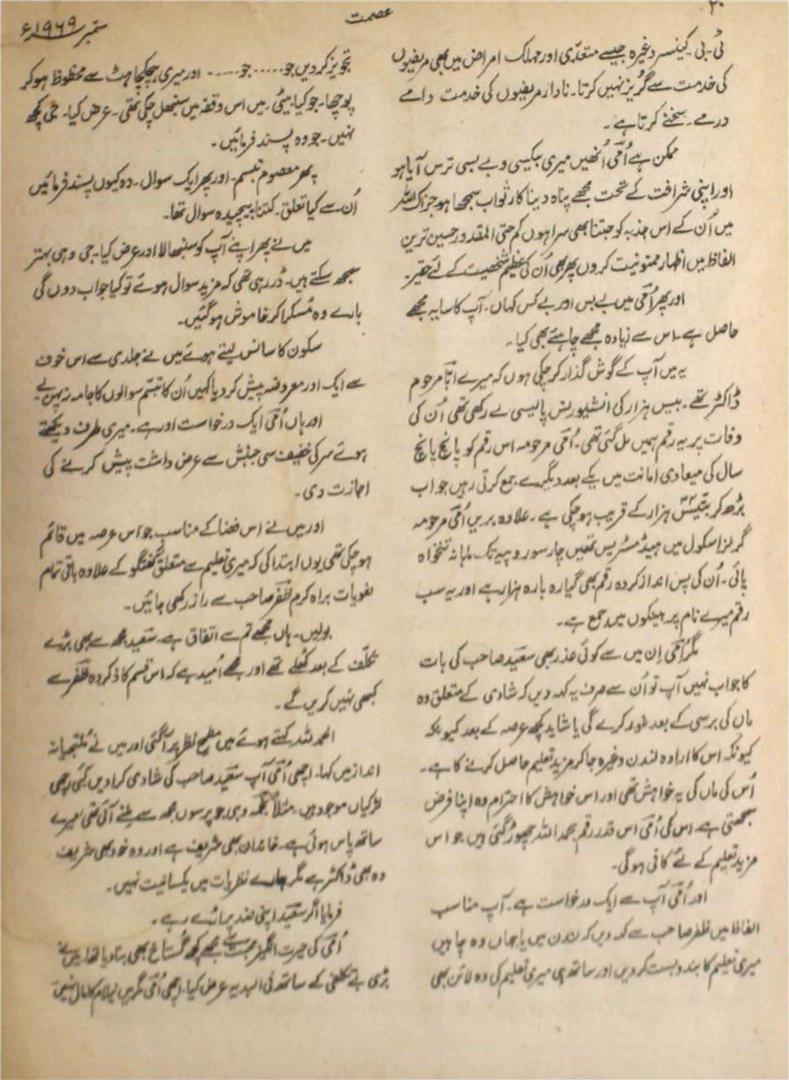 ۲۰
عصمت
ستمبر ۱۹۶۹ء
ٹی۔بی۔ کینسر وغیرہ جیسے متعدی اور مہلک امراض میں بھی مریضوں
کی خدمت سے گریز نہیں کرتا۔ نادار مریضوں کی خدمت دامے
درمے۔ سخنے کرتا ہے۔
ممکن ہے اُمّی اُنھیں میری بیکسی و بے بسی ترس آیا ہو
اور اپنی شرافت کے تحت مجھے پناہ دینا کارِ ثواب سمجھا ہو جزاک اللہ
میں اُن کے اس جذبہ کو جتنا بھی سراہوں کم حتی المقدور حسین ترین
الفاظ میں اظہار ممنونیت کروں پھر بھی اُن کی عظیم شخصیت کے لئے حقیر۔
اور پھر اُمّی میں بے بس اور بے کس کہاں۔ آپ کا سایہ مجھے
حاصل ہے۔ اس سے زیادہ مجھے چاہئے بھی کیا۔
یہ میں آپ کے گوش گذار کر چکی ہوں کہ میرے ابّا مرحوم
ڈاکٹر تھے۔ بیس ہزار کی انشیورنس پالیسی لے رکھی تھی اُن کی
وفات پر یہ رقم ہمیں مل گئی تھی۔ اُمّی مرحومہ اس رقم کو پانچ پانچ
سال کی میعادی امانت میں یکے بعد دیگرے جمع کرتی رہیں جو اب
بڑھ کر بتیس ۳۲ ہزار کے قریب ہو چکی ہے۔ علاوہ بریں اُمّی مرحومہ
گرلز اسکول میں ہیڈ مسٹریس تھیں چار سو روپیہ تک ماہانہ تنخواہ
پائی۔ اُن کی پس انداز کردہ رقم بھی گیارہ بارہ ہزار ہے اور یہ سب
رقم میرے نام پر بینکوں میں جمع ہے۔
مگر اُمّی اِن میں سے کوئی عذر بھی سعید صاحب کی بات
کا جواب نہیں آپ تو اُن سے صرف یہ کہہ دیں کہ شادی کے متعلق وہ
ماں کی برسی کے بعد غور کرے گی یا شاید کچھ عرصہ کے بعد کیونکہ
کیونکہ اس کا ارادہ لندن وغیرہ جا کر مزید تعلیم حاصل کرنے کا ہے۔
اُس کی ماں کی یہ خواہش تھی اور اس خواہش کا احترام وہ اپنا فرض
سمجھتی ہے۔ اس کی اُمّی اس قدر رقم بحمد اللہ چھوڑ گئی ہیں جو اس
مزید تعلیم کے لئے کافی ہوگی۔
اور اُمّی آپ سے ایک درخواست ہے۔ آپ مناسب
الفاظ میں ظفر صاحب سے کہہ دیں کہ لندن میں یا جہاں وہ چاہیں
میری تعلیم کا بندوبست کر دیں اور ساتھ ہی میری تعلیم کی وہ لائن بھی
تجویز کر دیں جو ..... جو ..... اور میری ہچکچاہٹ سے محظوظ ہو کر
پوچھا۔ جو کیا بیٹی۔ میں اس وقفہ میں سنبھل چکی تھی۔ عرض کیا۔ جی کچھ
نہیں۔ جو وہ پسند فرمائیں۔
پھر معصوم تبسم۔ اور پھر ایک سوال۔ وہ کیوں پسند فرمائیں
اُن سے کیا تعلق۔ کتنا پیچیدہ سوال تھا۔
میں نے پھر اپنے آپ کو سنبھالا اور عرض کیا۔ جی وہی بہتر
سمجھ سکتے ہیں۔ ڈر رہی تھی کہ مزید سوال ہوئے تو کیا جواب دوں گی
بارے وہ مُسکرا کر خاموش ہو گئیں۔
سکون کا سانس لیتے ہوئے میں نے جلدی سے اس خوف
سے ایک اور معروضہ پیش کر دیا کہیں اُن کا تبسّم سوالوں کا جامہ نہ پہن لے
اور ہاں اُمّی ایک درخواست اور ہے۔ میری طرف دیکھتے
ہوئے سر کی خفیف سی جنبش سے عرض داشت پیش کرنے کی
اجازت دی۔
اور میں نے اس فضا کے مناسب جو اس عرصہ میں قائم
ہو چکی تھی یوں ابتدا کی کہ میری تعلیم سے متعلق گفتگو کے علاوہ باقی تمام
لغویات براہ کرم ظفر صاحب سے راز رکھی جائیں۔
بولیں۔ ہاں مجھے تم سے اتفاق ہے۔ سعید مجھ سے بھی بڑے
تکلّف کے بعد کُھلے تھے اور مجھے اُمید ہے کہ اس قسم کا ذکر وہ ظفر سے
کبھی نہیں کریں گے۔
الحمد للہ کہتے ہوئے میں مطمح نظر پر آ گئی اور میں نے مُلتجیانہ
انداز میں کہا۔ اچھی اُمّی آپ سعید صاحب کی شادی کرا دیں کئی اچھی
لڑکیاں موجود ہیں۔ مثلاً نجمہ وہی جو پرسوں مجھ سے ملنے آئی تھی میرے
ساتھ پاس ہوئی ہے۔ خاندان بھی شریف ہے اور وہ خود بھی شریف
وہ بھی ڈاکٹر ہے مگر ہمارے نظریات میں یکسانیت نہیں۔
فرمایا اگر سعید اپنی ضد پر اڑے رہے۔
اُمّی کی حیرت انگیز محبت نے مجھے کچھ گستاخ بھی بنا دیا تھا۔ میں نے
بڑی بے تکلفی کے ساتھ فی البدیہہ عرض کیا۔ اچھی اُمّی مگر میں نیلام کا مال نہیں